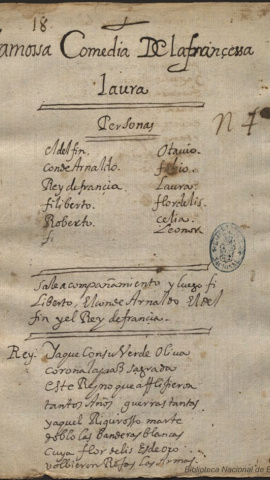 18.
famossa Comedia De la françessa
Laura
Personas
N 7
el delfin. Otavio.
conde Arnaldo. fabio.
Rey de francia. Laura.
filiberto. flordelis.
Roberto. celia.
fi Leonora
Salle acompañamiento y luego fi
Liberto, El conde Arnaldo El Del
fin y el Rey de francia.
Rey. Ya que con su Verde Oliva
corona la paz sagrada
este Reyno que afligieron
tantos Años guerras tantas
y aquel Rigurosso marte
las banderas blancas
cuya flor de lis Es de oro
volvieron Rojas las Armas
Biblioteca Nacional de E